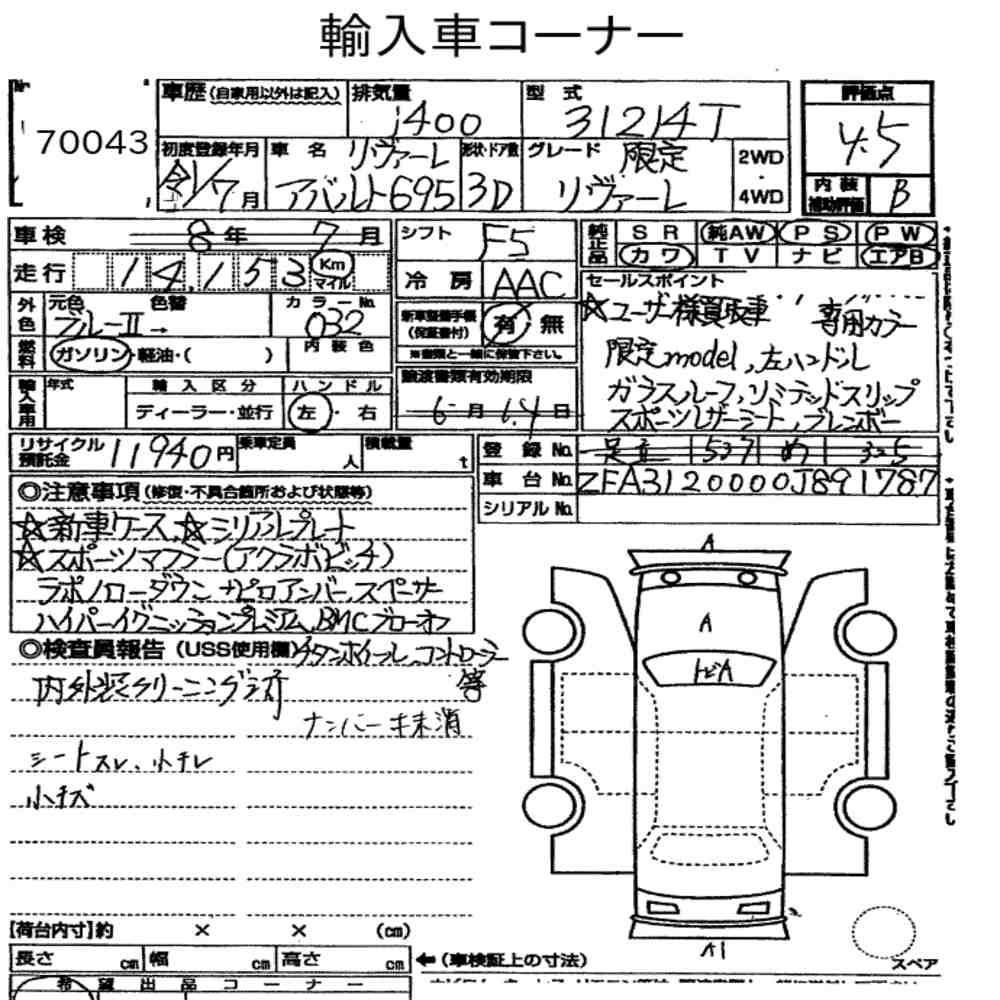 輸入車コーナー
70043
車歴(自家用以外は記入) 排気量 1400 型式 31214T 評価点 4.5
初度登録年月 令1/7月 車名 リヴァーレ アバルト695 形状・ドア数 3D グレード 限定 リヴァーレ 2WD・4WD 内装補助評価 B
車検 8年 7月 シフト F5 純正品 SR 純AW PS PW
カワ TV ナビ エアB
走行 14,153 Km マイル 冷房 AAC
外色 元色 ブルーII→ 色替 カラーNo. 032
内装色
燃料 ガソリン・軽油・( )
新車整備手帳(保証書付) 有・無
※書類と一緒に保管下さい。
輸入車用 年式 輸入区分 ディーラー・並行 ハンドル 左・右
譲渡書類有効期限 6月14日
セールスポイント
☆ユーザー様買取車 専用カラー
限定model,左ハンドル
ガラスルーフ,リミテッドスリップ
スポーツレザーシート,ブレンボー
リサイクル預託金 11940円 乗車定員 人 積載量 t
登録No. 足立 537 め 325
車台No. ZFA3120000J891787
シリアルNo.
◎注意事項(修復・不具合箇所および状態等)
☆新車ケース,☆シリアルプレート
☆スポーツマフラー(アクラポビッチ)
ラポノローダウン ナピロアンバースペーサー
ハイパーイグニッションプレミアム,BMCブローオフ
◎検査員報告(USS使用欄)チタンホイール,コントローラー
内外装クリーニング済 等
ナンバー未抹消
シートスレ、小キレ
小キズ
A
A
トビA
A1
【荷台内寸】約 × × (cm)
長さ cm 幅 cm 高さ cm ←(車検証上の寸法)
スペア
希望出品コーナー